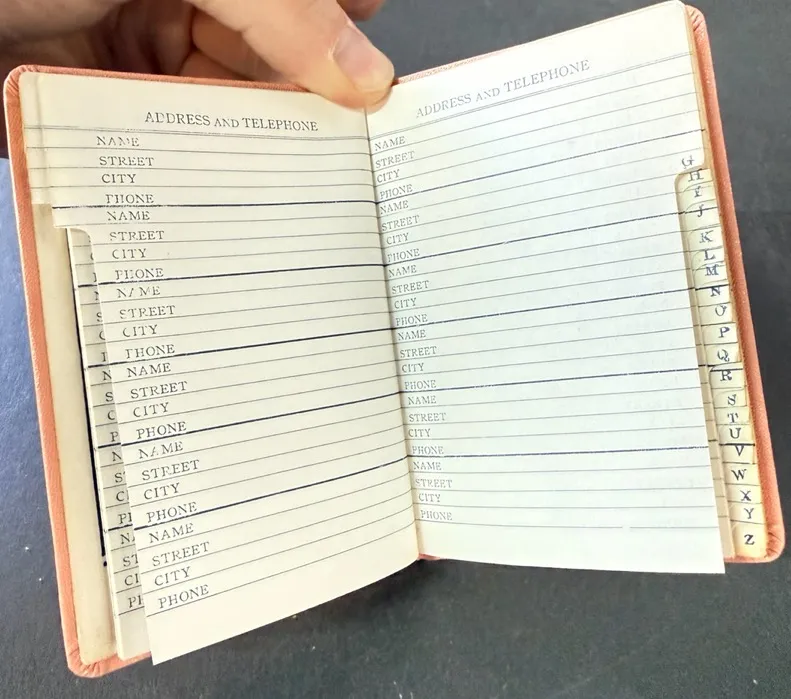 ADDRESS AND TELEPHONE
NAME
STREET
CITY
PHONE
NAME
STREET
CITY
PHONE
NAME
STREET
CITY
PHONE
NAME
STREET
CITY
PHONE
NAME
STREET
CITY
PHONE
NAME
STREET
CITY
PHONE
ADDRESS AND TELEPHONE
NAME
STREET
CITY
PHONE
NAME
STREET
CITY
PHONE
NAME
STREET
CITY
PHONE
NAME
STREET
CITY
PHONE
NAME
STREET
CITY
PHONE
NAME
STREET
CITY
PHONE
G
H
I
J
K
L
M
N
O
P
Q
R
S
T
U
V
W
X
Y
Z